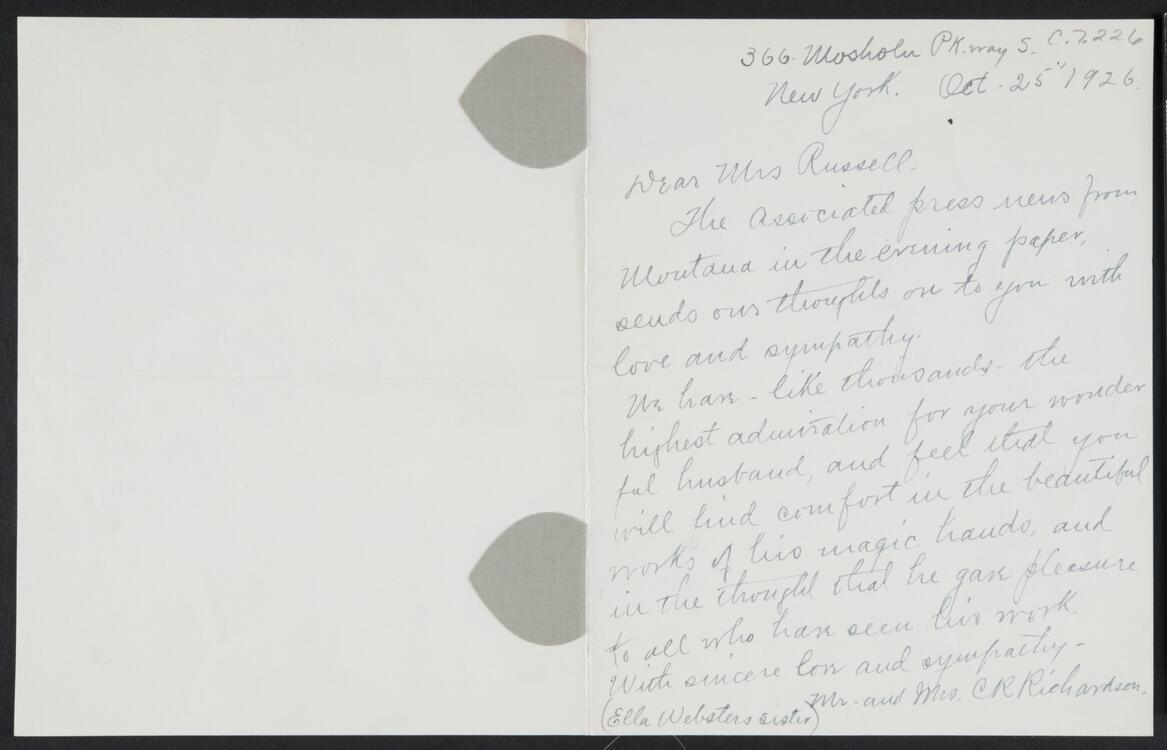 366. Mosholu PK.way S. C.7.226
New York. Oct. 25" 1926.
Dear Mrs Russell.
The Associated press news from
Montana in the evening paper,
sends our thoughts on to you with
love and sympathy.
We have - like thousands - the
highest admiration for your wonder
ful husband, and feel that you
will find comfort in the beautiful
works of his magic hands, and
in the thought that he gave pleasure
to all who have seen his work.
With sincere love and sympathy -
Mr. and Mrs. C R Richardson.
(Ella Websters sister)